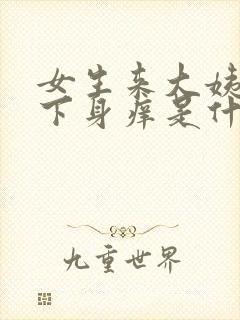 女生来大姨
下身痒是什
九重世界